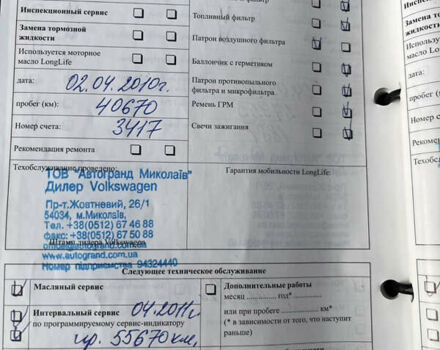 Инспекционный сервис
Замена тормозной
жидкости
Используется моторное
масло LongLife
дата: 02.04.2010г.
пробег (км): 40670
Номер счета: 3417
Рекомендация ремонта
Техобслуживание проведено:
ТОВ "Автогранд Миколаїв"
Дилер Volkswagen
Пр-т.Жовтневий, 26/1
54034, м.Миколаїв,
Тел. +38(0512) 67 46 88
факс: +38(0512) 67 50 88
office@autogrand.com.ua
Штамп дилера Volkswagen
www.autogrand.com.ua
Номер підприємства 94324440
Топливный фильтр
Патрон воздушного фильтра
Баллончик с герметиком
Патрон противопыльного
фильтра и микрофильтра.
Ремень ГРМ
Свечи зажигания
Гарантия мобильности LongLife:
Следующее техническое обслуживание
Масляный сервис
Интервальный сервис 04.2011г.
по программируемому сервис-индикатору
пр. 55670 км,
Дополнительные работы
месяц ............ год*
или при пробеге ............ км*
(* в зависимости от того, что наступит
раньше)
Инспекц
Замена
жидкост
Использу
масло Lo
дата:
пробег (
Номер с
Рекомен
Техобсл